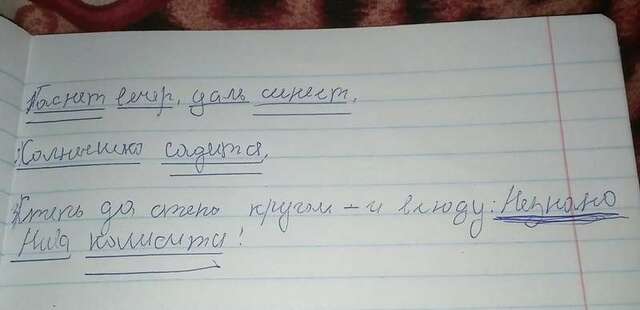 Гаснет вечер, даль синеет,
Солнышко садится,
Степь да степь кругом – и всюду:
Нива колосится!